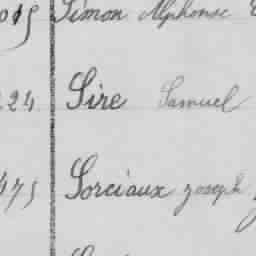 015 Simon Alphonse
224 Sire Samuel
475 Sorciaux joseph